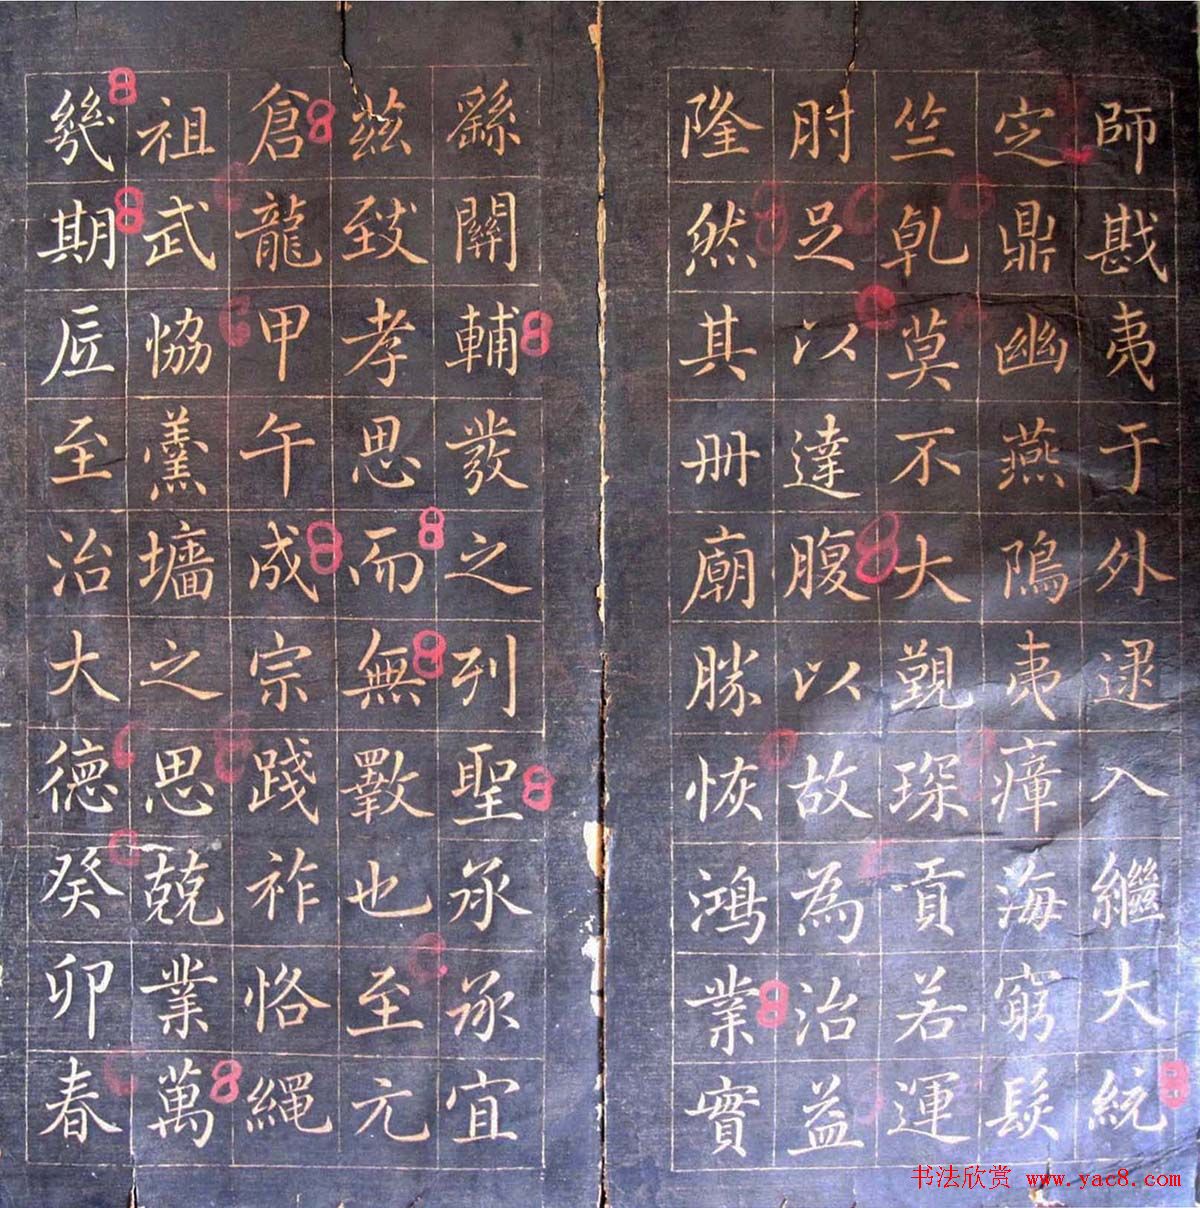 師戡夷于外逮入繼大統
定鼎幽燕隝夷瘴海窮髮
竺乹莫不大覲琛貢若運
肘足以達腹以故為治益
隆然其冊廟勝恢鴻業實
繇關輔發之列聖承承宜
茲致孝思而無斁也至元
倉龍甲午成宗踐祚恪繩
祖武恊羹墻之思兢業萬
幾期底至治大德癸卯春
书法欣赏 www.yac8.com